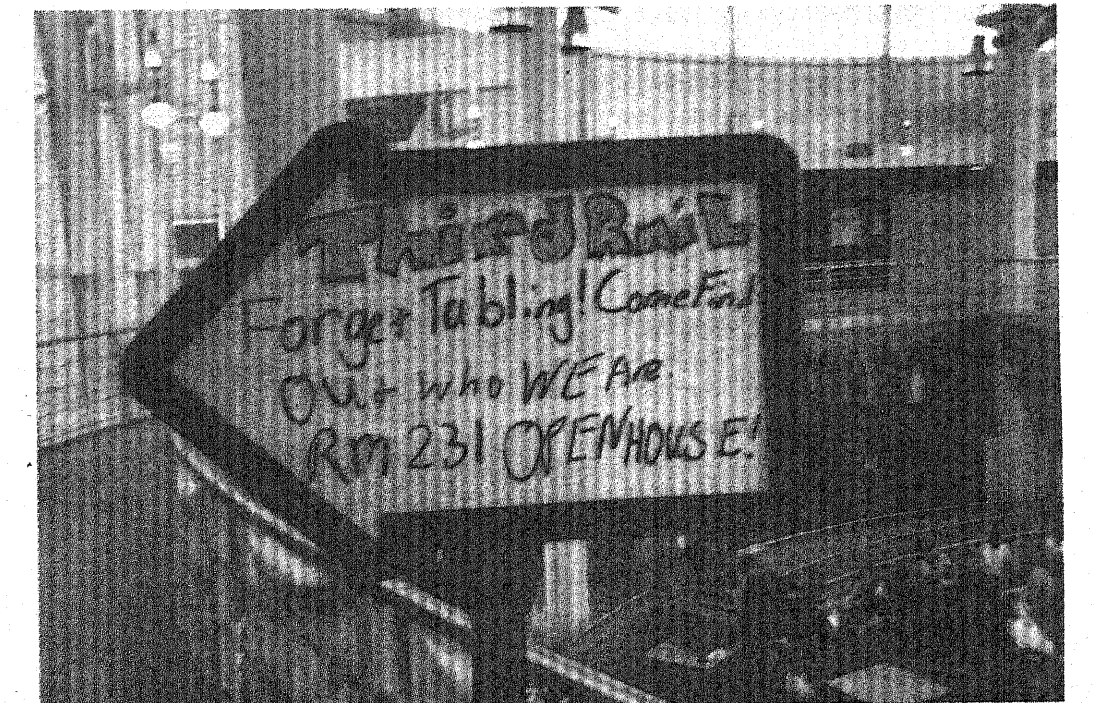 Third Rail
Forget Tabling! Come Find
Out who WE Are.
Rm 231 OPENHOUSE!